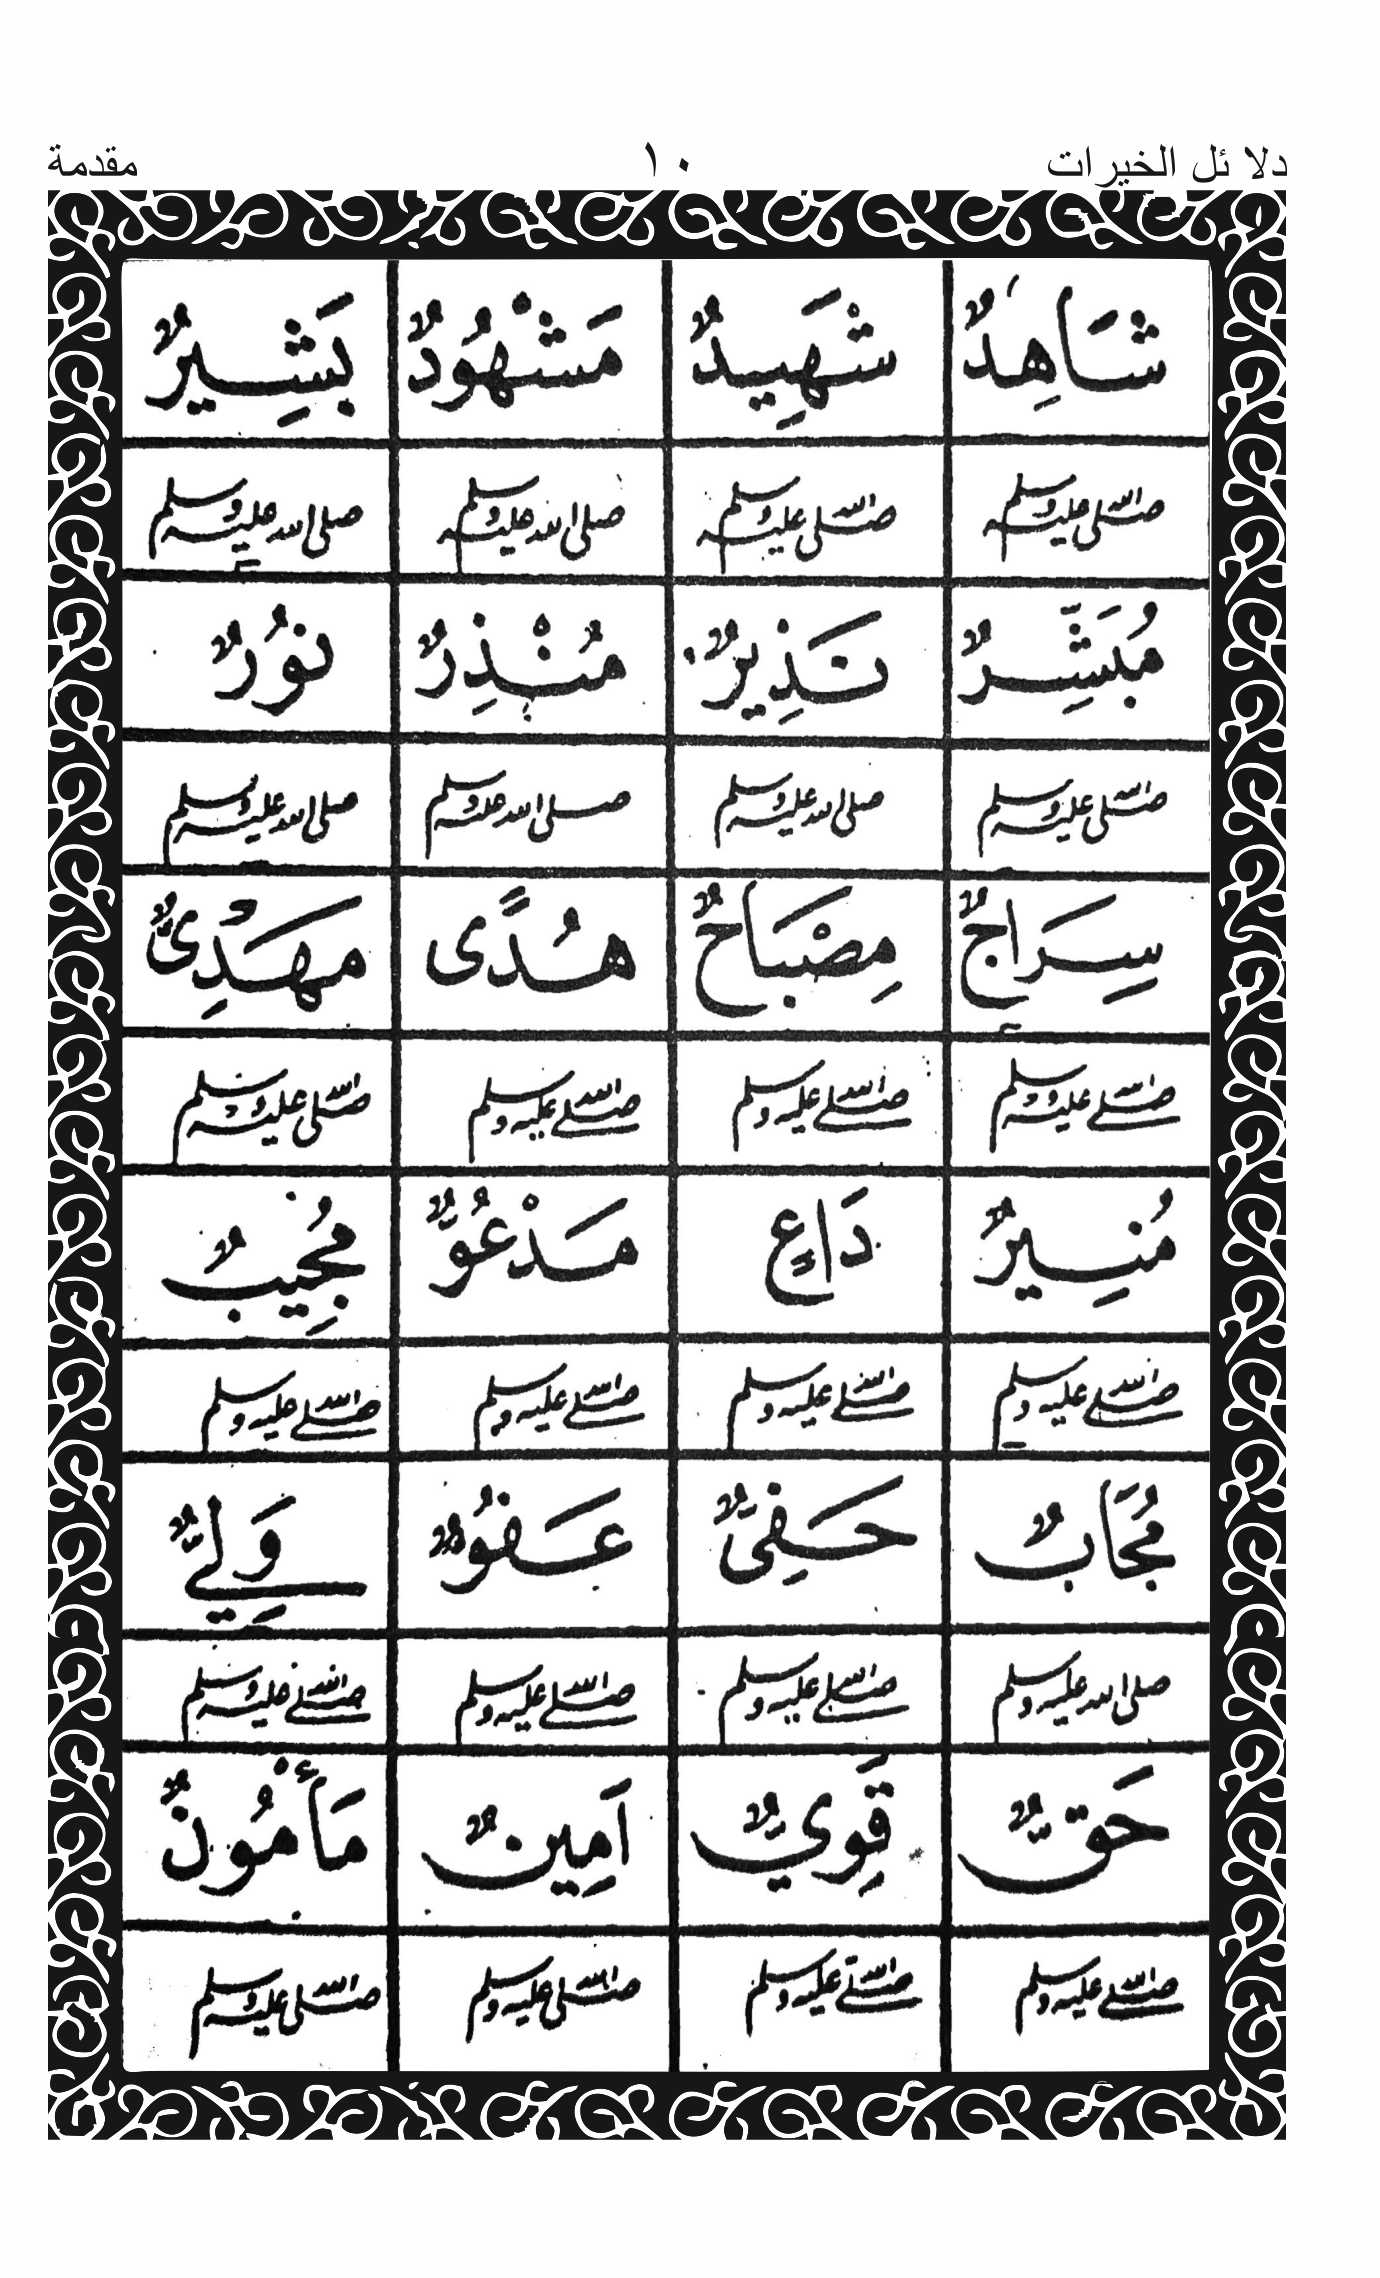 دلا ئل الخيرات ١٠ مقدمة
شَاهِدٌ شَهِيدٌ مَشْهُودٌ بَشِيرٌ
صلى الله عليه وسلم صلى الله عليه وسلم صلى الله عليه وسلم صلى الله عليه وسلم
مُبَشِّرٌ نَذِيرٌ مُنْذِرٌ نُورٌ
صلى الله عليه وسلم صلى الله عليه وسلم صلى الله عليه وسلم صلى الله عليه وسلم
سِرَاجٌ مِصْبَاحٌ هُدًى مَهْدِىٌّ
صلى الله عليه وسلم صلى الله عليه وسلم صلى الله عليه وسلم صلى الله عليه وسلم
مُنِيرٌ دَاعٍ مَدْعُوٌّ مُجِيبٌ
صلى الله عليه وسلم صلى الله عليه وسلم صلى الله عليه وسلم صلى الله عليه وسلم
مُجَابٌ حَفِىٌّ عَفُوٌّ وَلِىٌّ
صلى الله عليه وسلم صلى الله عليه وسلم صلى الله عليه وسلم صلى الله عليه وسلم
حَقٌّ قَوِيٌّ اَمِينٌ مَأْمُونٌ
صلى الله عليه وسلم صلى الله عليه وسلم صلى الله عليه وسلم صلى الله عليه وسلم